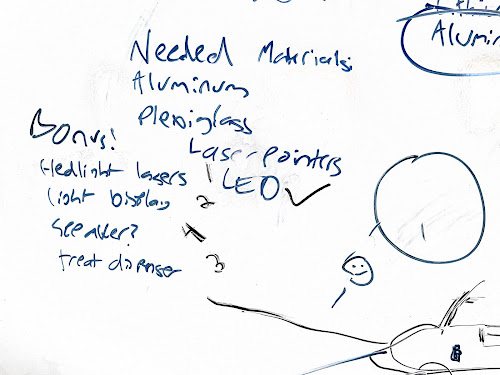 Aluminu
Needed Materials:
Aluminum
Plexiglass
Laser pointers
LED ✓
Bonus!
Hedlight lasers 1
Light Display 2
Speaker? 4
treat dispenser 3